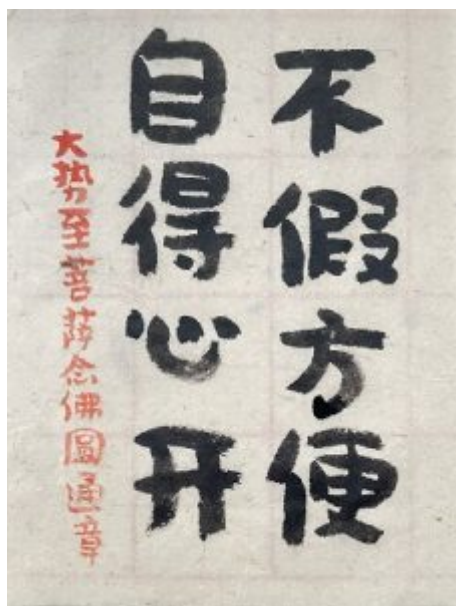 不假方便
自得心开
大势至菩萨念佛圓通章